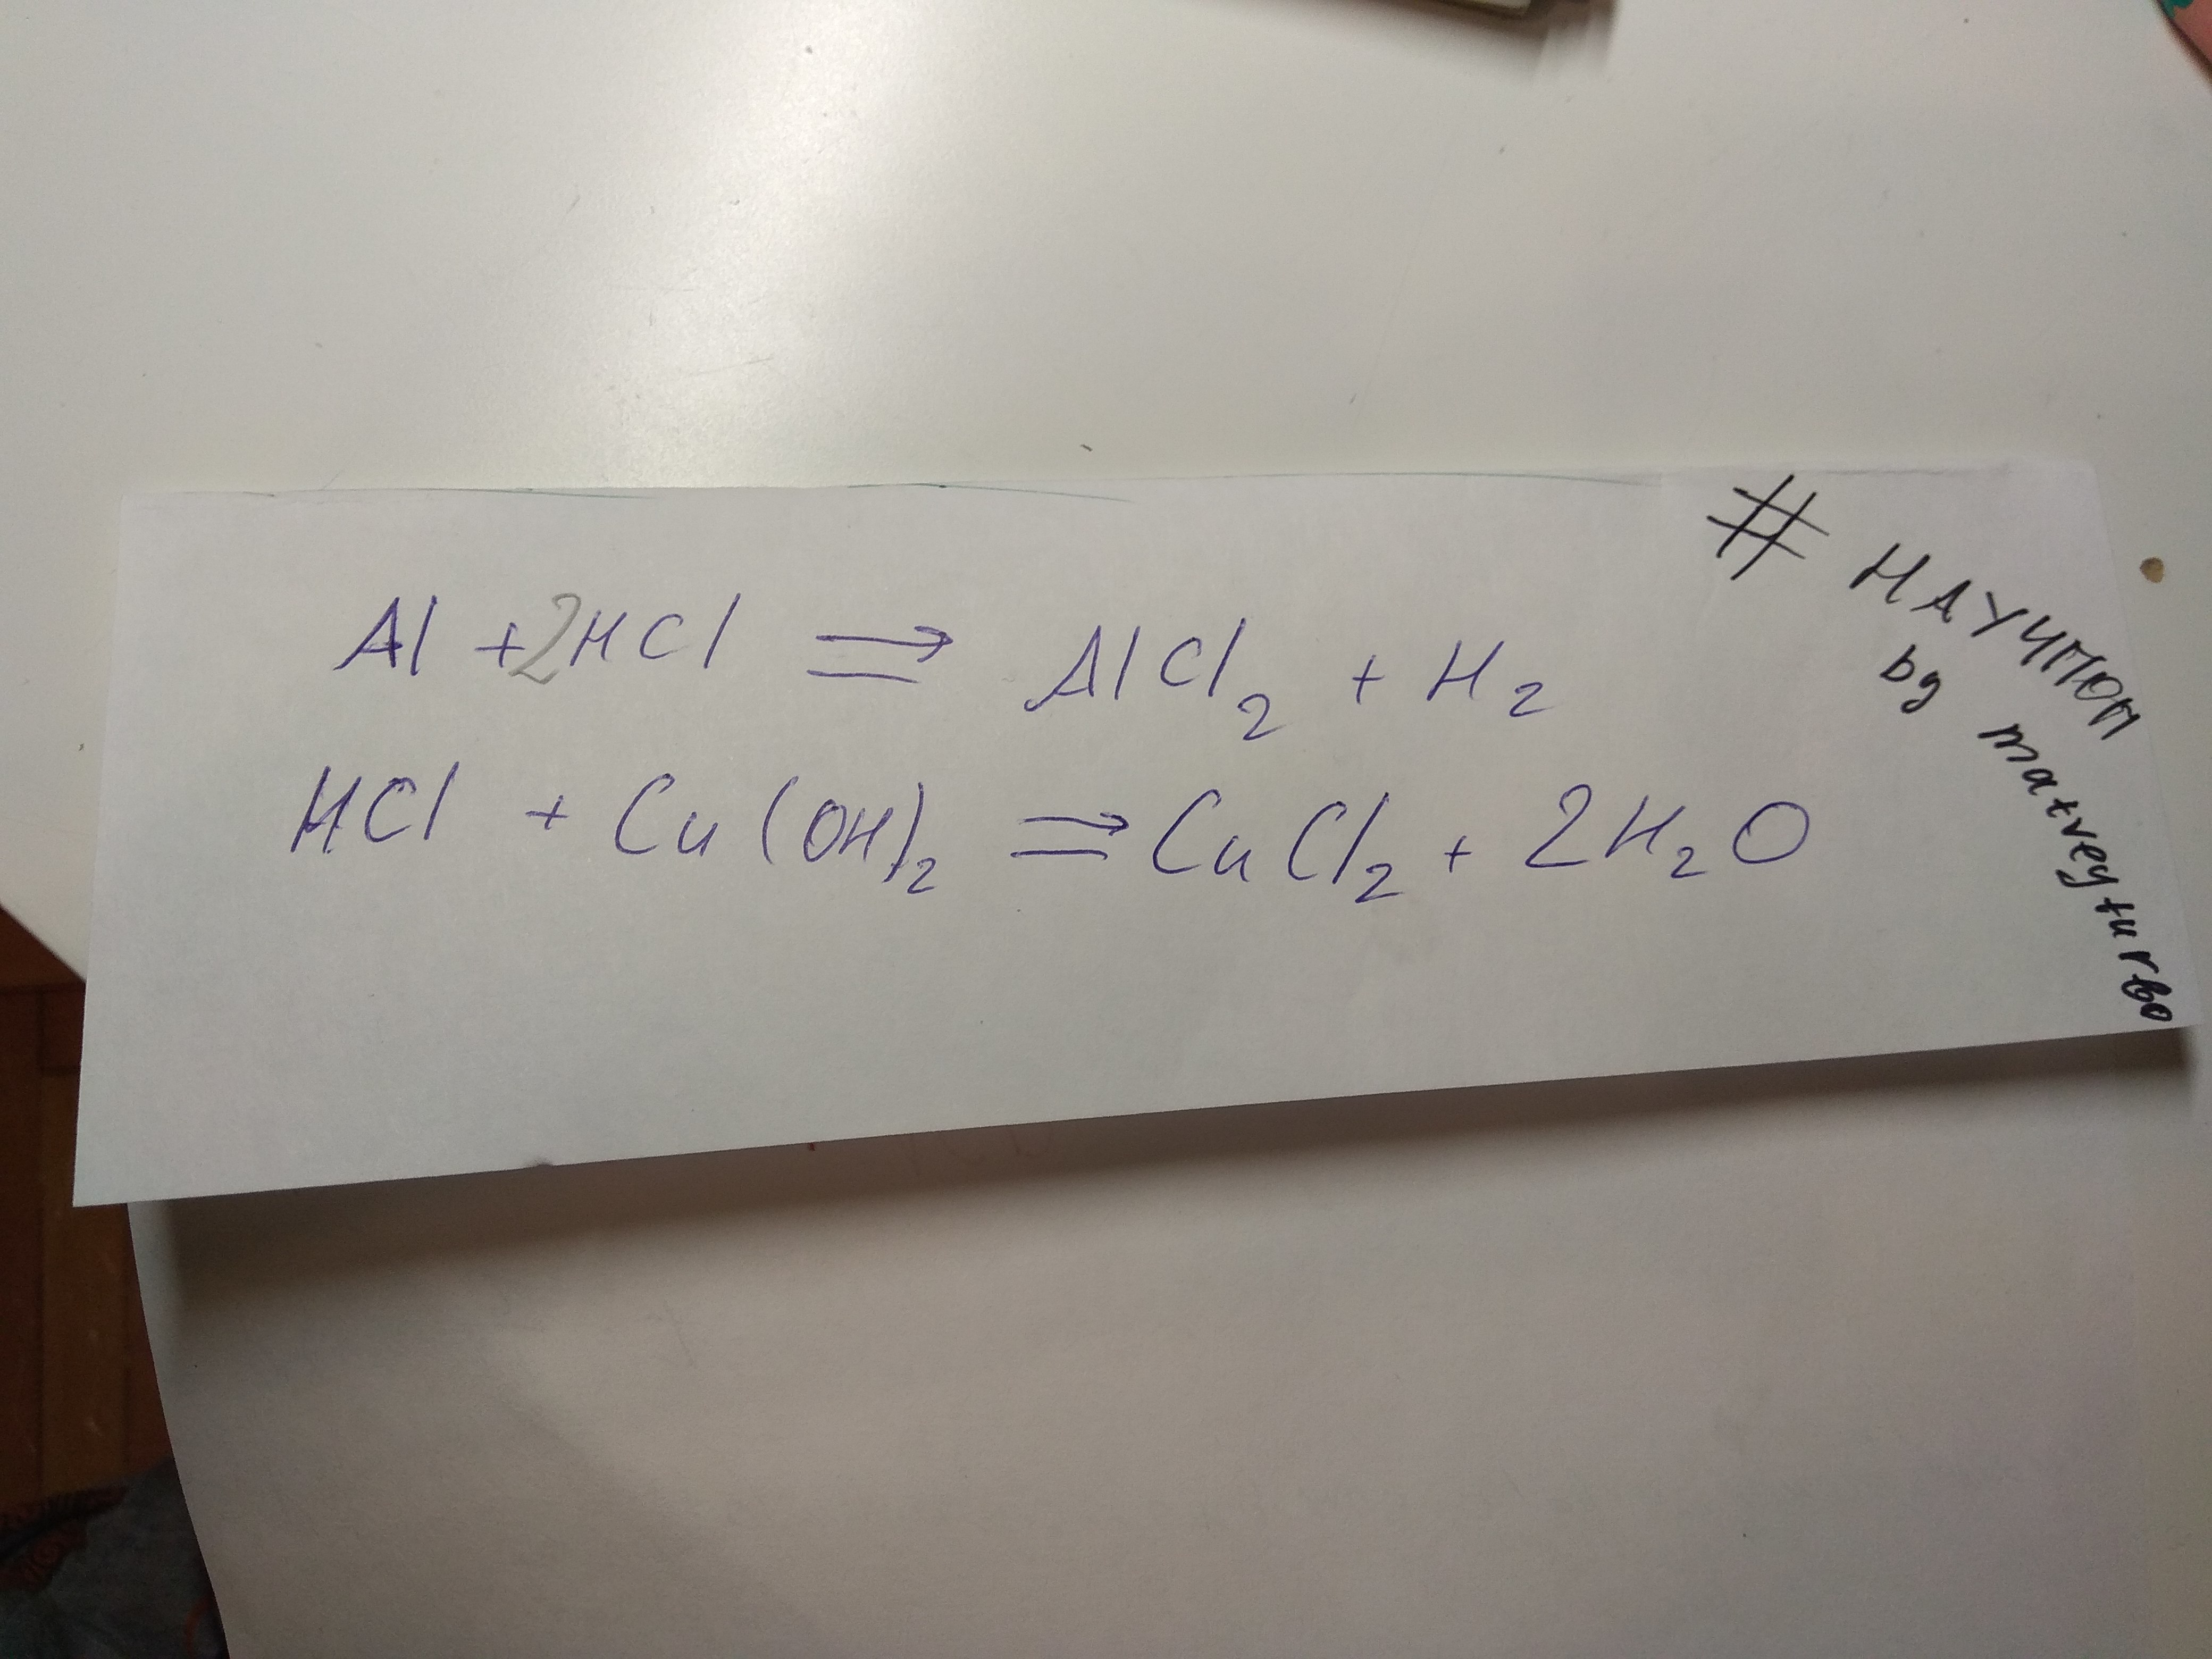 Al + 2HCl ⇒ AlCl₂ + H₂
HCl + Cu(OH)₂ ⇒ CuCl₂ + 2H₂O
# НАУЧПОП
by matveyturbo